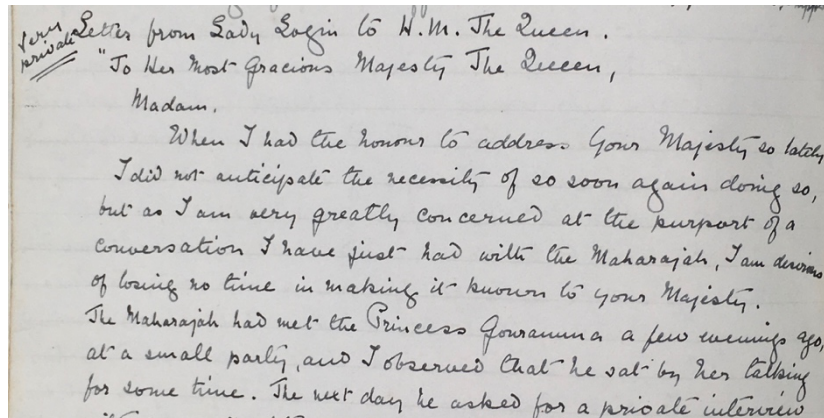 very
private
Letter from Lady Login to H.M. The Queen.
"To Her Most Gracious Majesty The Queen,
Madam.
When I had the honour to address Your Majesty so lately
I did not anticipate the necessity of so soon again doing so,
but as I am very greatly concerned at the purport of a
conversation I have just had with the Maharajah, I am desirous
of losing no time in making it known to your Majesty.
The Maharajah had met the Princess Gouramma a few evenings ago,
at a small party, and I observed that he sat by her talking
for some time. The next day he asked for a private interview